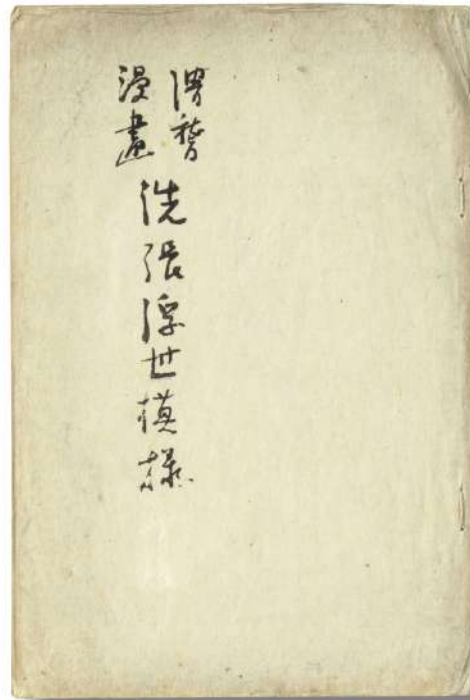 滑稽
漫畫
洗張浮世模様